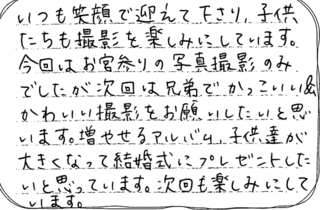 いつも笑顔で迎えて下さり、子供
たちも撮影を楽しみにしています。
今回はお宮参りの写真撮影のみ
でしたが次回は兄弟でかっこいい&
かわいい撮影をお願いしたいと思
います。増やせるアルバム、子供達が
大きくなって結婚式にプレゼントした
いと思っています。次回も楽しみにして
います。